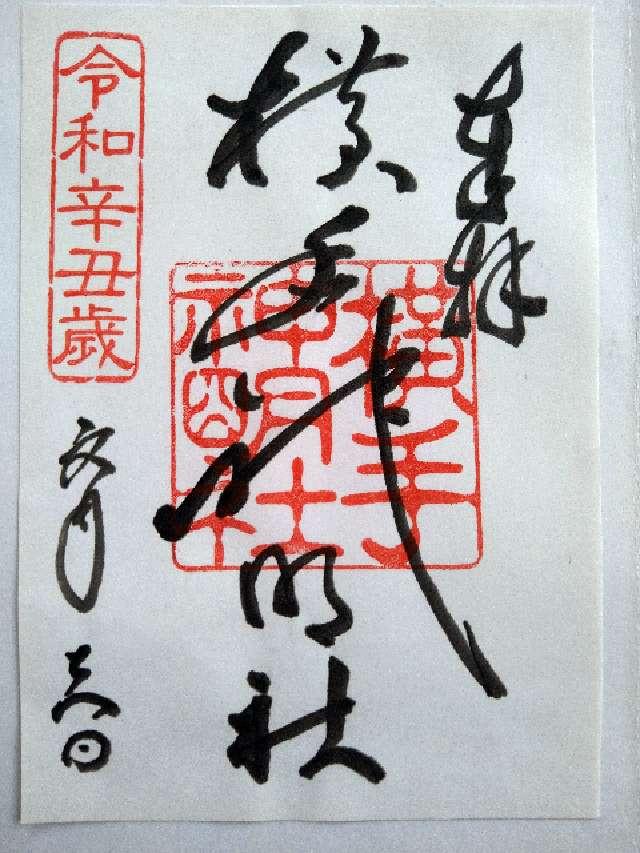 奉拝
横手神明社
横手
神明社
令和辛丑歳
文月
日